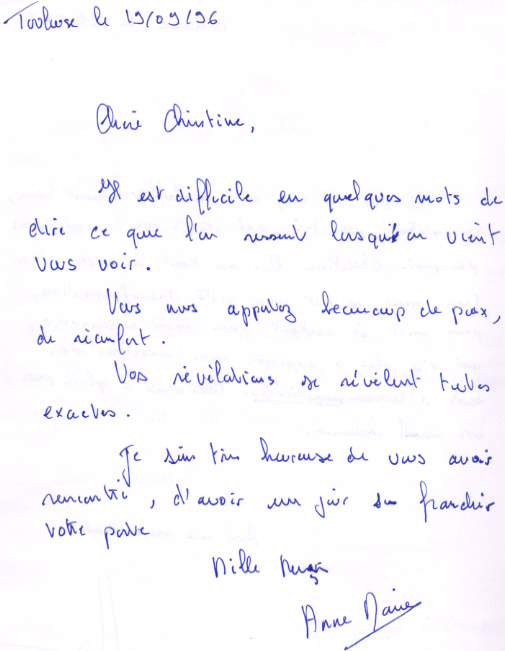 Toulouse le 19/09/96
Chère Christine,
Il est difficile en quelques mots de
dire ce que l'on ressent lorsqu'on vient
vous voir.
Vous nous apportez beaucoup de paix,
de réconfort.
Vos révélations se révèlent toutes
exactes.
Je suis très heureuse de vous avoir
rencontré, d'avoir un jour su franchir
votre porte
Mille Merci
Anne Marie